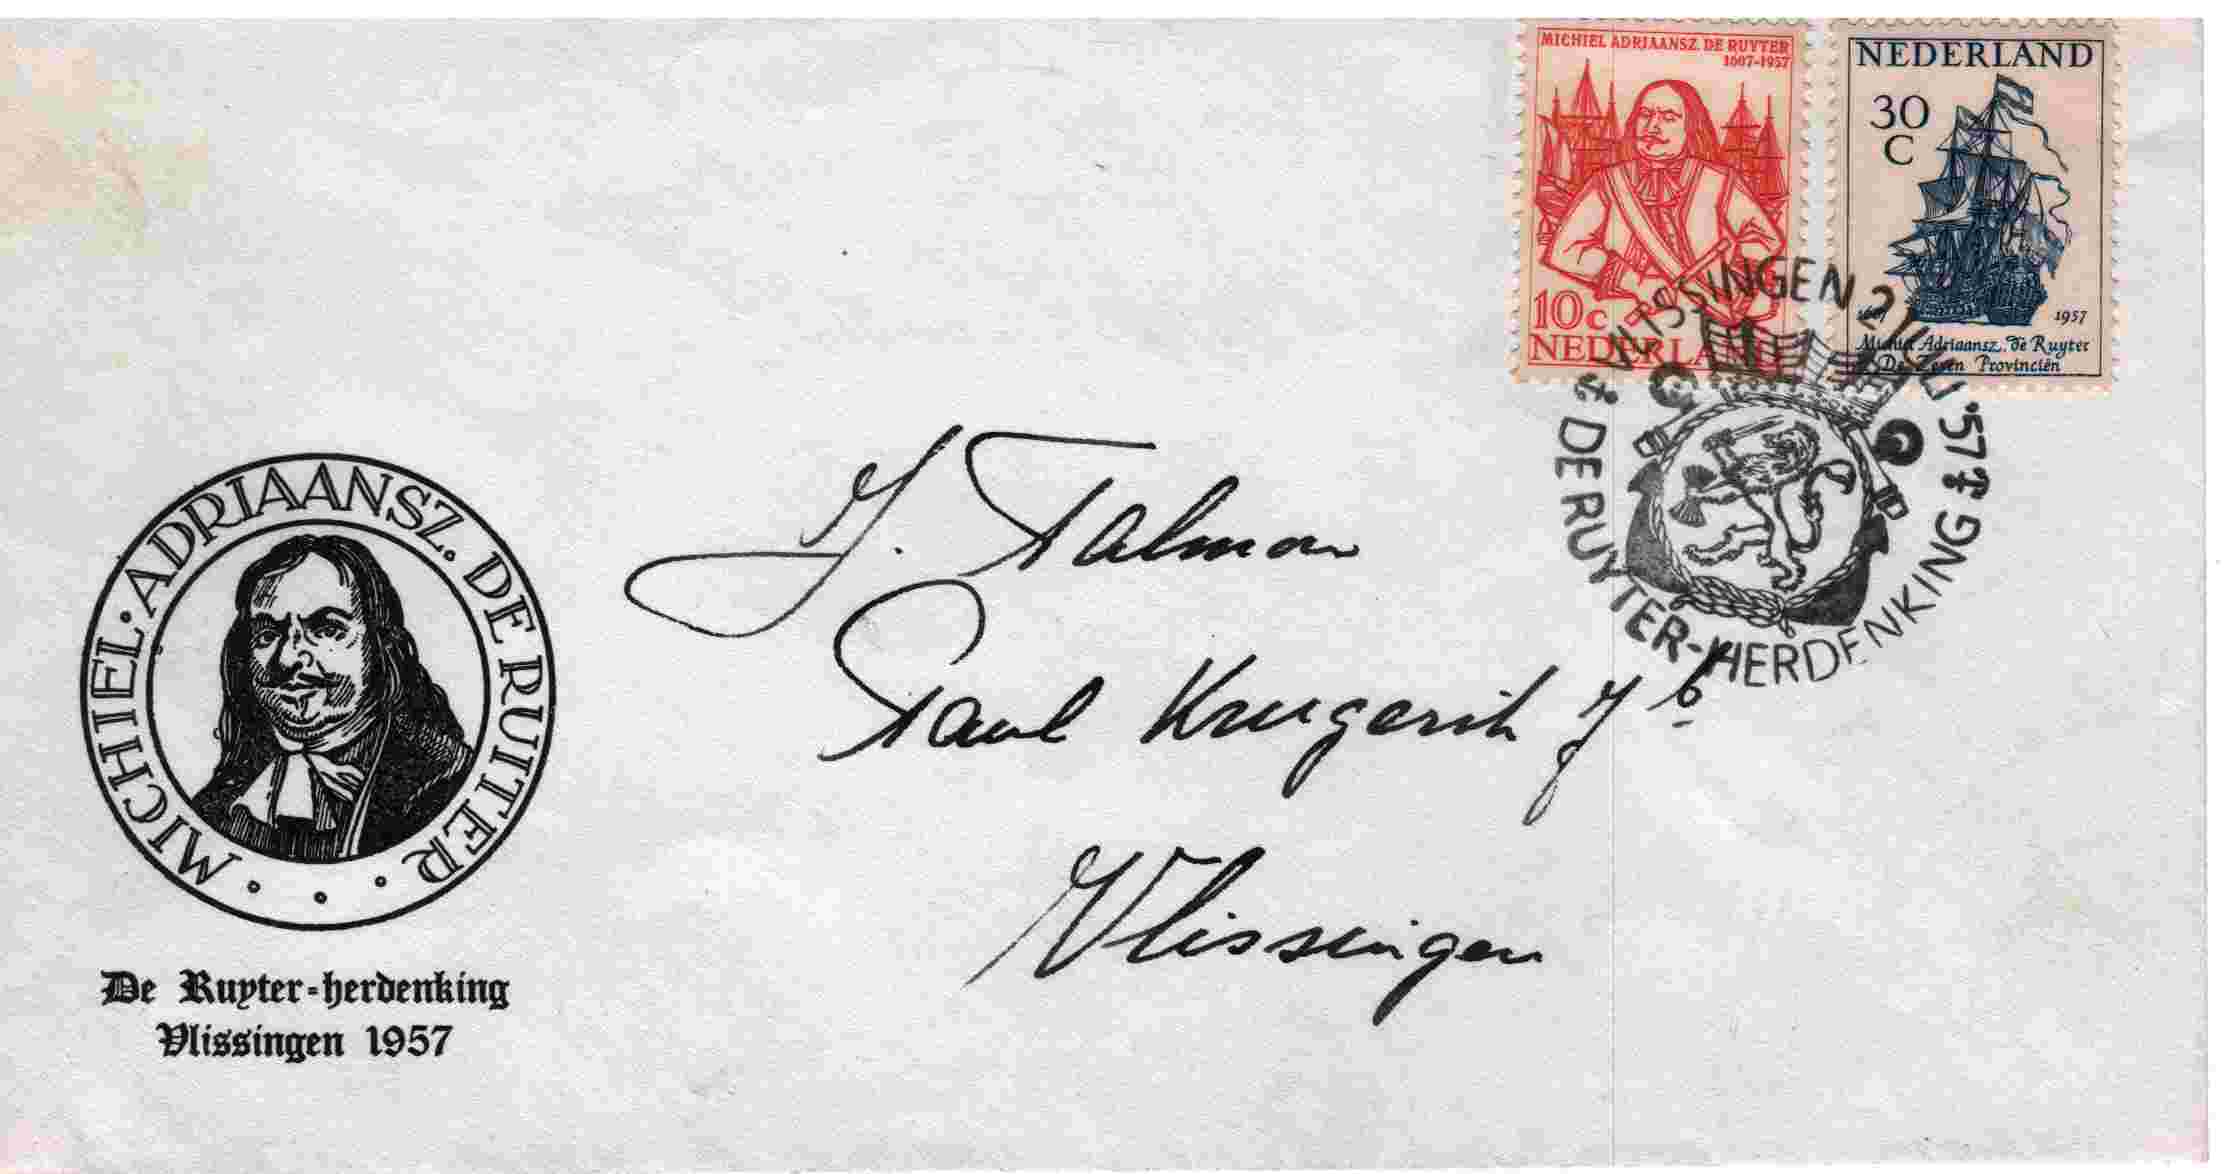 MICHIEL ADRIAANSZ. DE RUYTER
1607-1957
10c
NEDERLAND
NEDERLAND
30
C
1607 1957
Michiel Adriaansz. de Ruyter
De Zeven Provinciën
VLISSINGEN 2 JULI '57
DE RUYTER-HERDENKING
MICHIEL·ADRIAANSZ. DE RUITER
J. Talman
Paul Krugerstr
Vlissingen
De Ruyter-herdenking
Vlissingen 1957